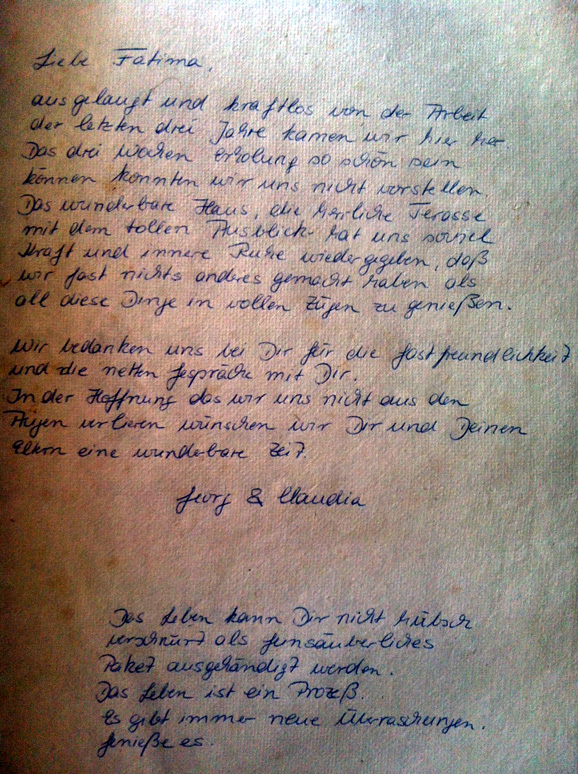 Liebe Fatima,
ausgelaugt und kraftlos von der Arbeit
der letzten drei Jahre kamen wir hier her.
Das drei Wochen Erholung so schön sein
können konnten wir uns nicht vorstellen.
Das wunderbare Haus, die herrliche Terasse
mit dem tollen Ausblick hat uns soviel
Kraft und innere Ruhe wiedergegeben, daß
wir fast nichts anderes gemacht haben als
all diese Dinge in vollen Zügen zu genießen.
Wir bedanken uns bei Dir für die Gastfreundlichkeit
und die netten Gespräche mit Dir.
In der Hoffnung das wir uns nicht aus den
Augen verlieren wünschen wir Dir und Deinen
Eltern eine wunderbare Zeit.
Georg & Claudia
Das Leben kann Dir nicht hübsch
verschnürt als
Paket ausgehändigt werden.
Das Leben ist ein Prozeß.
Es gibt immer neue Überraschungen.
Genieße es.